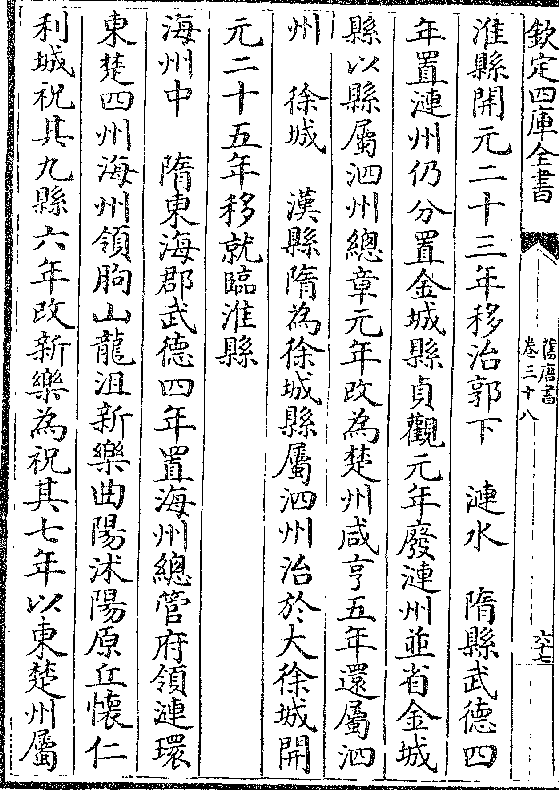 欽定四庫全書
舊唐書
卷三十八
六十七
淮縣開元二十三年移治郭下　漣水　隋縣武德四
年置漣州仍分置金城縣貞觀元年廢漣州並省金城
縣以縣屬泗州總章元年改為楚州咸亨五年還屬泗
州　徐城　漢縣隋為徐城縣屬泗州治於大徐城開
元二十五年移就臨淮縣
海州中　隋東海郡武德四年置海州總管府領漣環
東楚四州海州領朐山龍沮新樂曲陽沭陽原丘懷仁
利城祝其九縣六年改新樂為祝其七年以東楚州屬